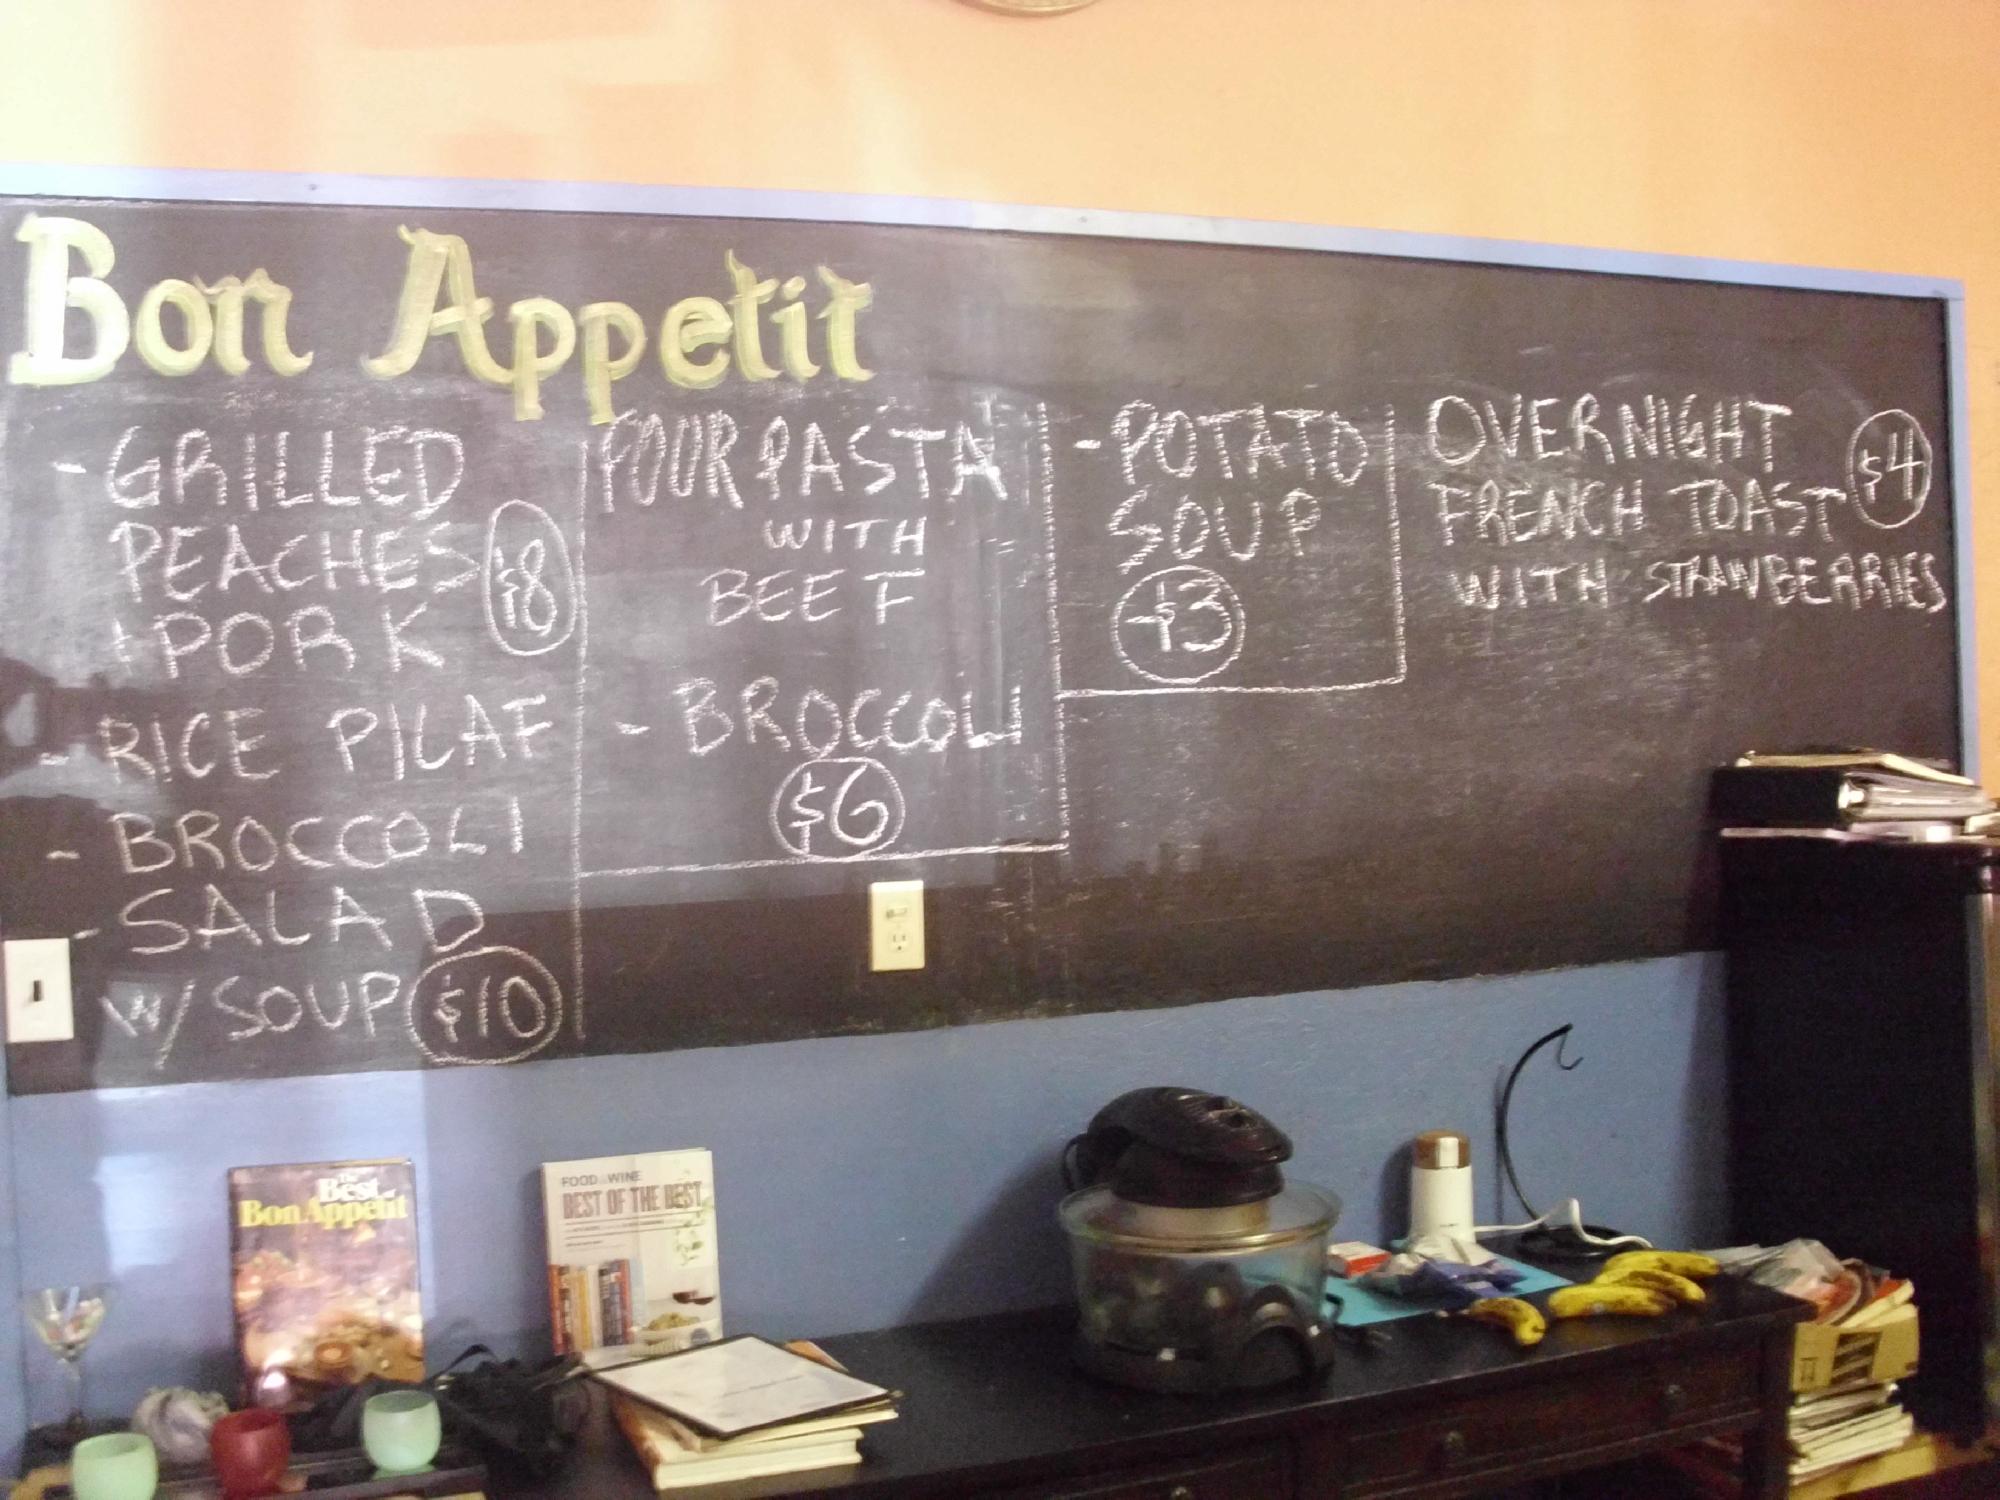 Bon Appetit
- GRILLED
PEACHES
+ PORK
$8
- RICE PILAF
- BROCCOLI
- SALAD
W/ SOUP $10
FOUR PASTA
WITH
BEEF
- BROCCOLI
$6
- POTATO
SOUP
$3
OVERNIGHT
FRENCH TOAST
WITH STRAWBERRIES
$4
The
Best of
Bon Appetit
FOOD & WINE
BEST OF THE BEST